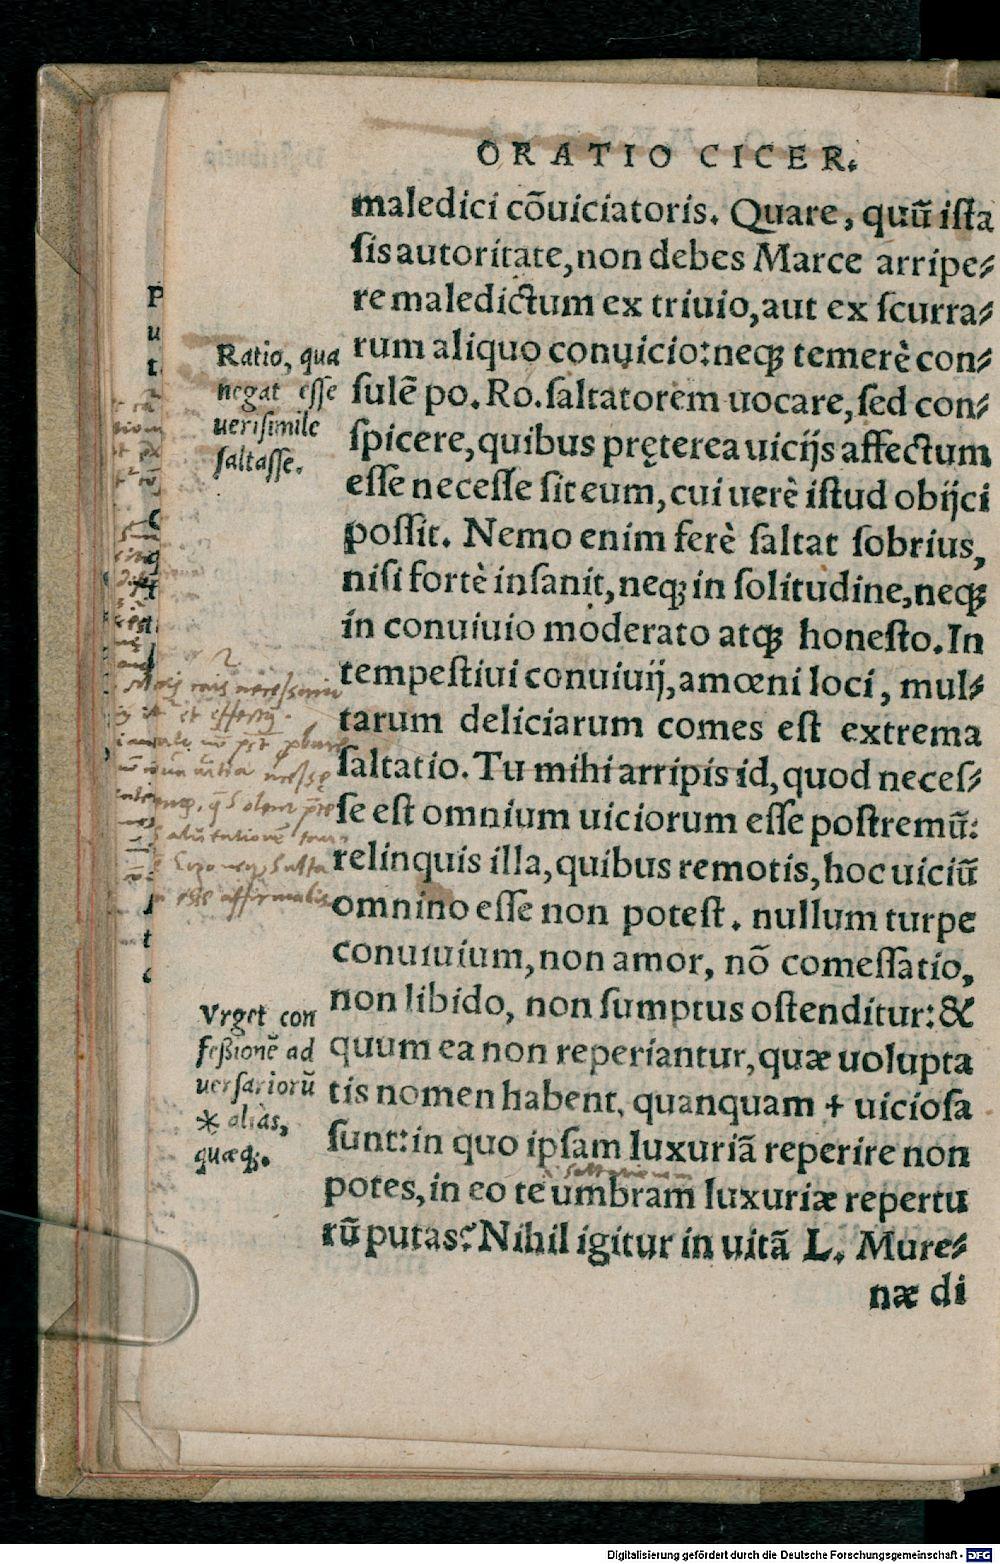 ORATIO CICER.
maledici cōuiciatoris. Quare, quū ista
sis autoritate, non debes Marce arripe⸗
re maledictum ex triuio, aut ex scurra⸗
rum aliquo conuicio: neqꝫ temerè con⸗
sulē po. Ro. saltatorem uocare, sed con⸗
spicere, quibus pręterea uicijs affectum
esse necesse sit eum, cui uerè istud obijci
possit. Nemo enim ferè saltat sobrius,
nisi fortè insanit, neqꝫ in solitudine, neqꝫ
in conuiuio moderato atqꝫ honesto. In
tempestiui conuiuij, amœni loci, mul⸗
tarum deliciarum comes est extrema
saltatio. Tu mihi arripis id, quod neces⸗
se est omnium uiciorum esse postremū:
relinquis illa, quibus remotis, hoc uiciū
omnino esse non potest. nullum turpe
conuiuium, non amor, nō comessatio,
non libido, non sumptus ostenditur: &
quum ea non reperiantur, quæ uolupta
tis nomen habent, quanquam + uiciosa
sunt: in quo ipsam luxuriā reperire non
saltationem
potes, in eo te umbram luxuriæ repertu
rū putas? Nihil igitur in uitā L. Mure⸗
næ di
Ratio, qua
negat esse
uerisimile
saltasse.
Vrget con
feßionē ad
uersariorū
* aliàs,
quæqꝫ.
necessario
et
affirmabis
Digitalisierung gefördert durch die Deutsche Forschungsgemeinschaft - DFG